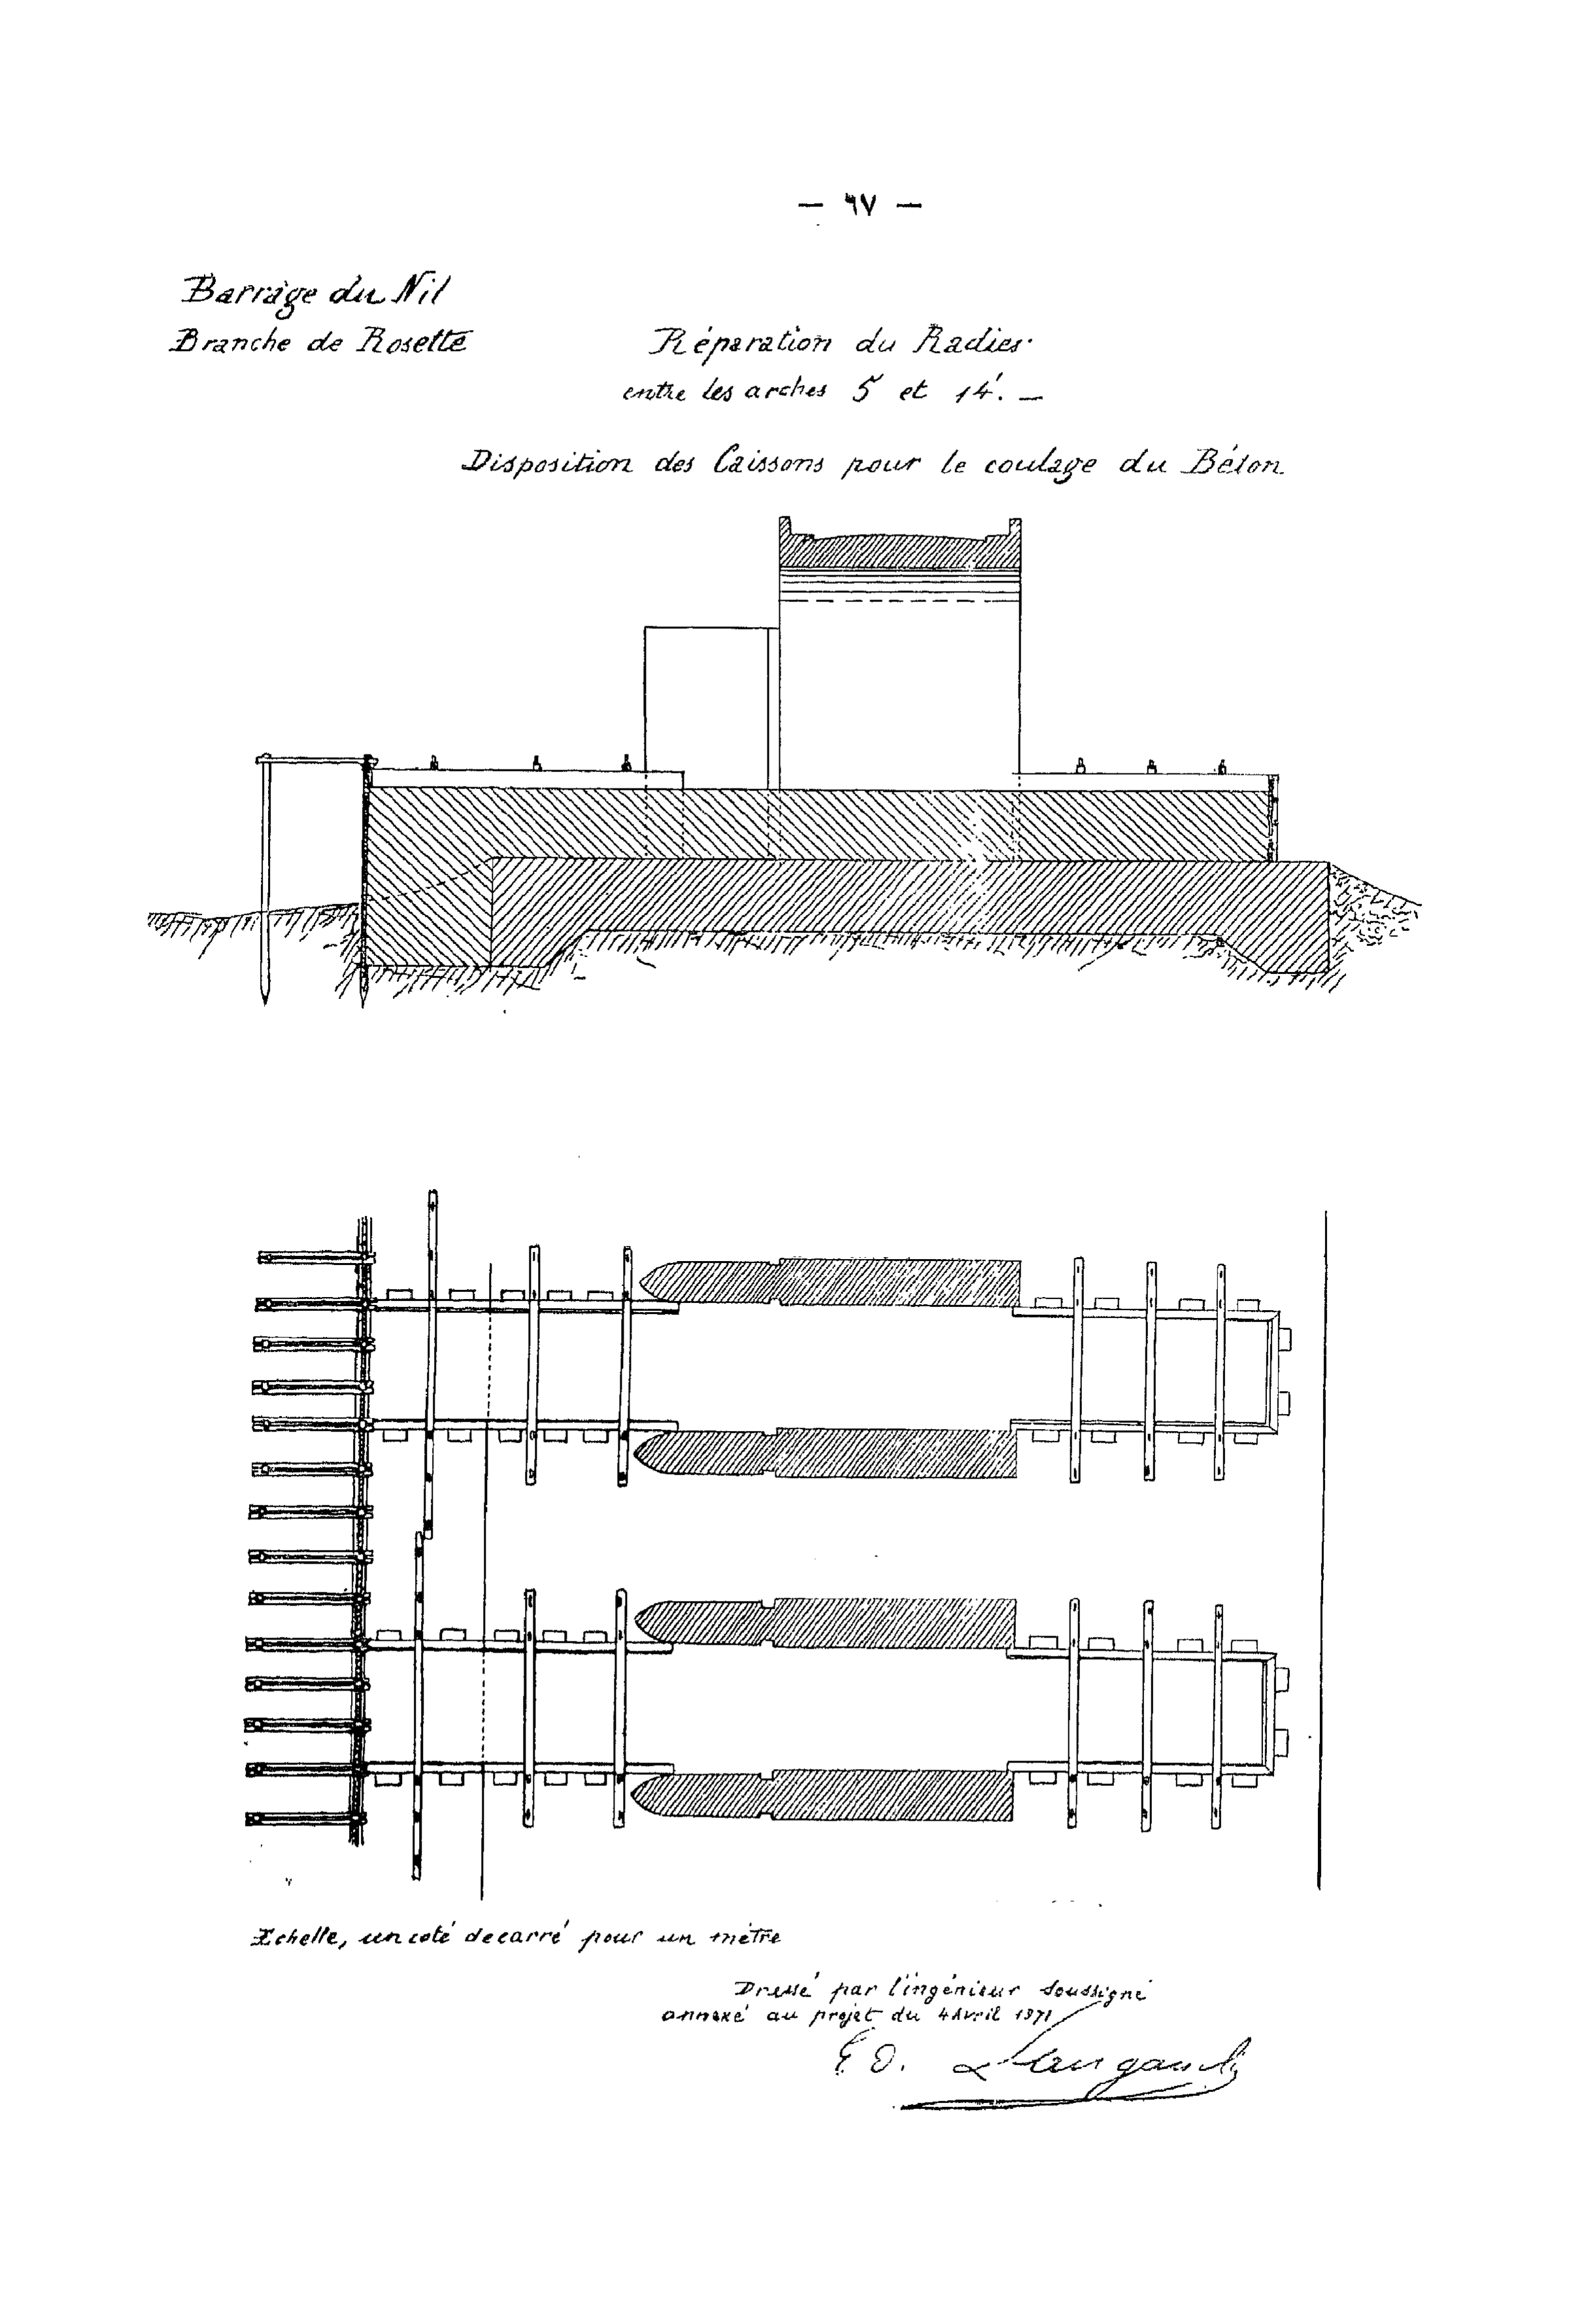 — ٩٧ —
Barrage du Nil
Branche de Rosette
Réparation du Radier
entre les arches 5 et 14. —
Disposition des Caissons pour le coulage du Béton
Echelle, un coté de carré pour un mètre
Dressé par l'ingénieur soussigné
annexé au projet du 4 Avril 1871